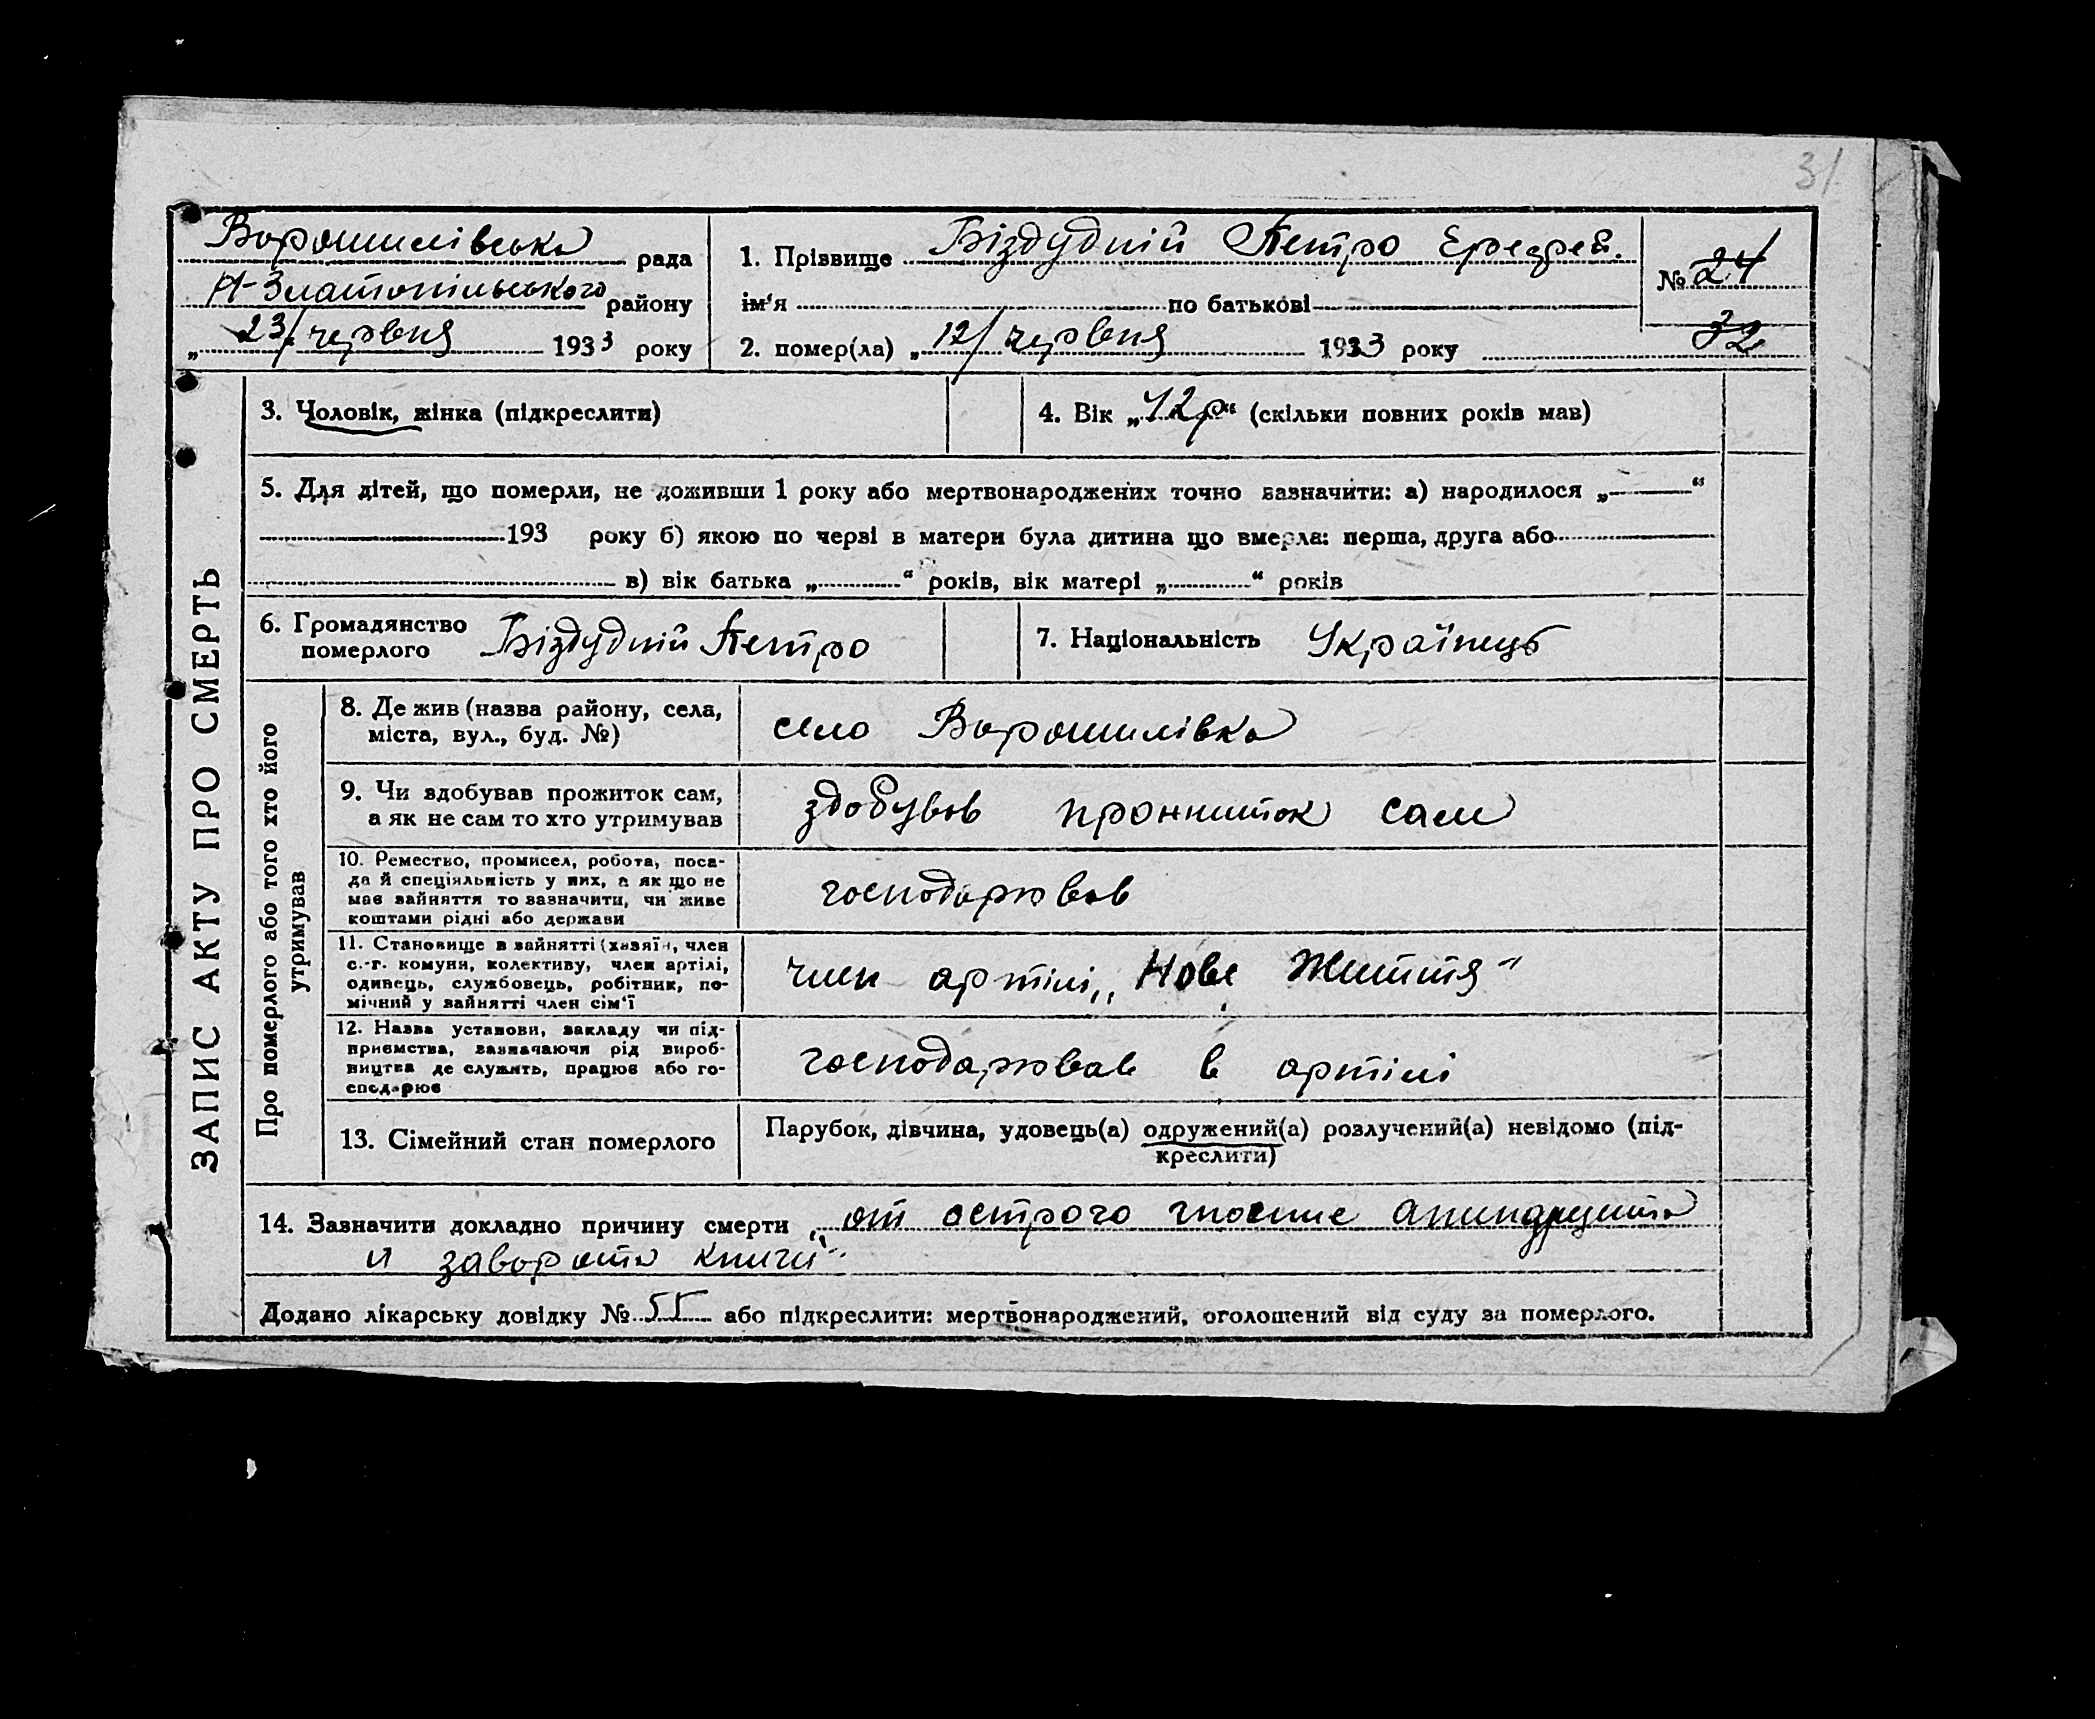 31
Ворошилівська рада
Н-Златопільського району
„ 23/ червня 1933 року
1. Прізвище Біздудній Петро
ім'я по батькові
2. помер(ла) „ 12/ червня 1933 року
№ 24
32
ЗАПИС АКТУ ПРО СМЕРТЬ
3. Чоловік, жінка (підкреслити)
4. Вік „ 42р “ (скільки повних років мав)
5. Для дітей, що померли, не доживши 1 року або мертвонароджених точно зазначити: а) народилося „ “
193 року б) якою по черзі в матери була дитина що вмерла: перша, друга або
в) вік батька „ “ років, вік матері „ “ років
6. Громадянство
померлого Біздудній Петро
7. Національність Українець
Про померлого або того хто його
утримував
8. Де жив (назва району, села,
міста, вул., буд. №)
село Ворошилівка
9. Чи здобував прожиток сам,
а як не сам то хто утримував
здобував прожиток сам
10. Ремество, промисел, робота, поса-
да й спеціяльність у них, а як що не
має зайняття то зазначити, чи живе
коштами рідні або держави
господарював
11. Становище в зайнятті (хазяїн, член
с.-г. комуни, колективу, член артілі,
одинець, службовець, робітник, по-
мічний у зайнятті член сім'ї
член артілі „Нове Життя“
12. Назва установи, закладу чи під-
приємства, зазначаючи рід вироб-
ництва де служить, працює або го-
сподарює
господарював в артілі
13. Сімейний стан померлого
Парубок, дівчина, удовець(а) одружений(а) розлучений(а) невідомо (під-
креслити)
14. Зазначити докладно причину смерти „от острого гноение апендецита
и заворота кишги“
Додано лікарську довідку № 55 або підкреслити: мертвонароджений, оголошений від суду за померлого.